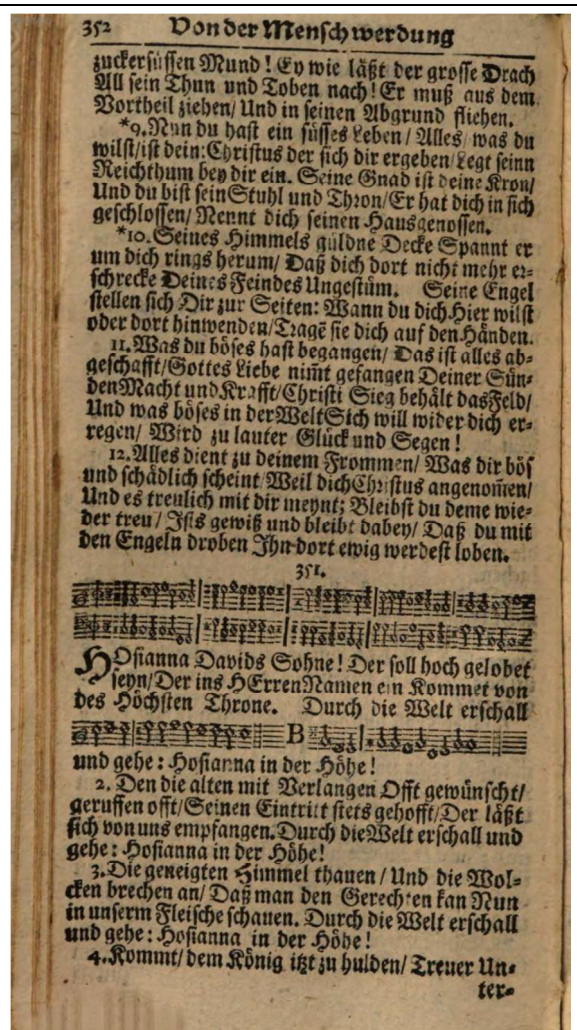 352 Von der Menschwerdung
zuckersüssen Mund! Ey wie läßt der grosse Drach
All sein Thun und Toben nach! Er muß aus dem
Vortheil ziehen/ Und in seinen Abgrund fliehen.
*9. Nun du hast ein süsses Leben/ Alles/ was du
wilst/ ist dein: Christus der sich dir ergeben/ Legt seinn
Reichthum bey dir ein. Seine Gnad ist deine Kron/
Und du bist sein Stuhl und Thron/ Er hat dich in sich
geschlossen/ Nennt dich seinen Hausgenossen.
*10. Seines Himmels güldne Decke Spannt er
um dich rings herum/ Daß dich dort nicht mehr er=
schrecke Deines Feindes Ungestüm. Seine Engel
stellen sich Dir zur Seiten: Wann du dich Hier wilst
oder dort hinwenden/ Tragẽ sie dich auf den Händen.
11. Was du böses hast begangen/ Das ist alles ab=
geschafft/ Gottes Liebe nim̃t gefangen Deiner Sün=
den Macht und Krafft/ Christi Sieg behält das Feld/
Und was böses in der Welt Sich will wider dich er=
regen/ Wird zu lauter Glück und Segen!
12. Alles dient zu deinem Frommen/ Was dir bös
und schädlich scheint/ Weil dich Christus angenom̃en/
Und es treulich mit dir meynt; Bleibst du deme wie=
der treu/ Ists gewiß und bleibt dabey/ Daß du mit
den Engeln droben Ihn dort ewig werdest loben.
351.
HOsianna Davids Sohne! Der soll hoch gelobet
seyn/ Der ins HErren Namen ein Kommet von
des Höchsten Throne. Durch die Welt erschall
B
und gehe: Hosianna in der Höhe!
2. Den die alten mit Verlangen Offt gewünscht/
geruffen offt/ Seinen Eintritt stets gehofft/ Der läßt
sich von uns empfangen. Durch die Welt erschall und
gehe: Hosianna in der Höhe!
3. Die geneigten Himmel thauen/ Und die Wol=
cken brechen an/ Daß man den Gerechten kan Nun
in unserm Fleische schauen. Durch die Welt erschall
und gehe: Hosianna in der Höhe!
4. Kommt/ dem König itzt zu hulden/ Treuer Un=
ter=